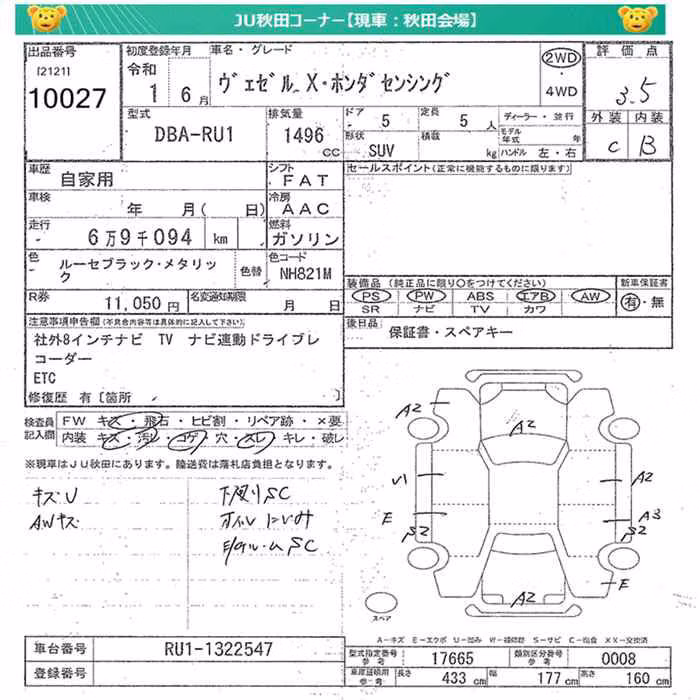 JU秋田コーナー【現車：秋田会場】
出品番号
[2121]
10027
初度登録年月
令和
1 6月
車名・グレード
ヴェゼル X・ホンダセンシング
2WD
・
4WD
評価点
3.5
外装 内装
C B
型式
DBA-RU1
排気量
1496
CC
ドア
5
定員
5 人
形状
SUV
積載
kg
ディーラー・並行
モデル年式 年
ハンドル 左・右
車歴
自家用
シフト
FAT
車検
年 月( 日)
冷房
AAC
走行
6万9千094 km
燃料
ガソリン
色
ルーセブラック・メタリック
色替
色コード
NH821M
R券
11,050 円
名変通知期限
月 日
セールスポイント(正常に機能するものに限ります)
装備品 (純正品に限り○をつけてください)
PS PW ABS エアB AW
SR ナビ TV カワ
新車保証書
有・無
後日品
保証書・スペアキー
注意事項申告欄(不具合内容等は具体的に記入して下さい)
社外8インチナビ TV ナビ連動ドライブレ
コーダー
ETC
修復歴 有〔箇所 〕
検査員
記入欄
FW キズ・飛石・ヒビ割・リペア跡・×要
内装 キズ・汚れ・コゲ・穴・スレ・キレ・破レ
※現車はJU秋田にあります。陸送費は落札店負担となります。
キズU
AWキズ
下廻りSC
A2
A2
U1
A2
E
B2
A3
B2
E
A2
スペア
A－キズ E－エクボ U－凹み W－補修跡 S－サビ C－腐食 XX－交換済
車台番号
RU1-1322547
登録番号
型式指定番号
参考
17665
類別区分番号
参考
0008
車庫証明用
参考
長さ
433 cm
幅
177 cm
高さ
160 cm